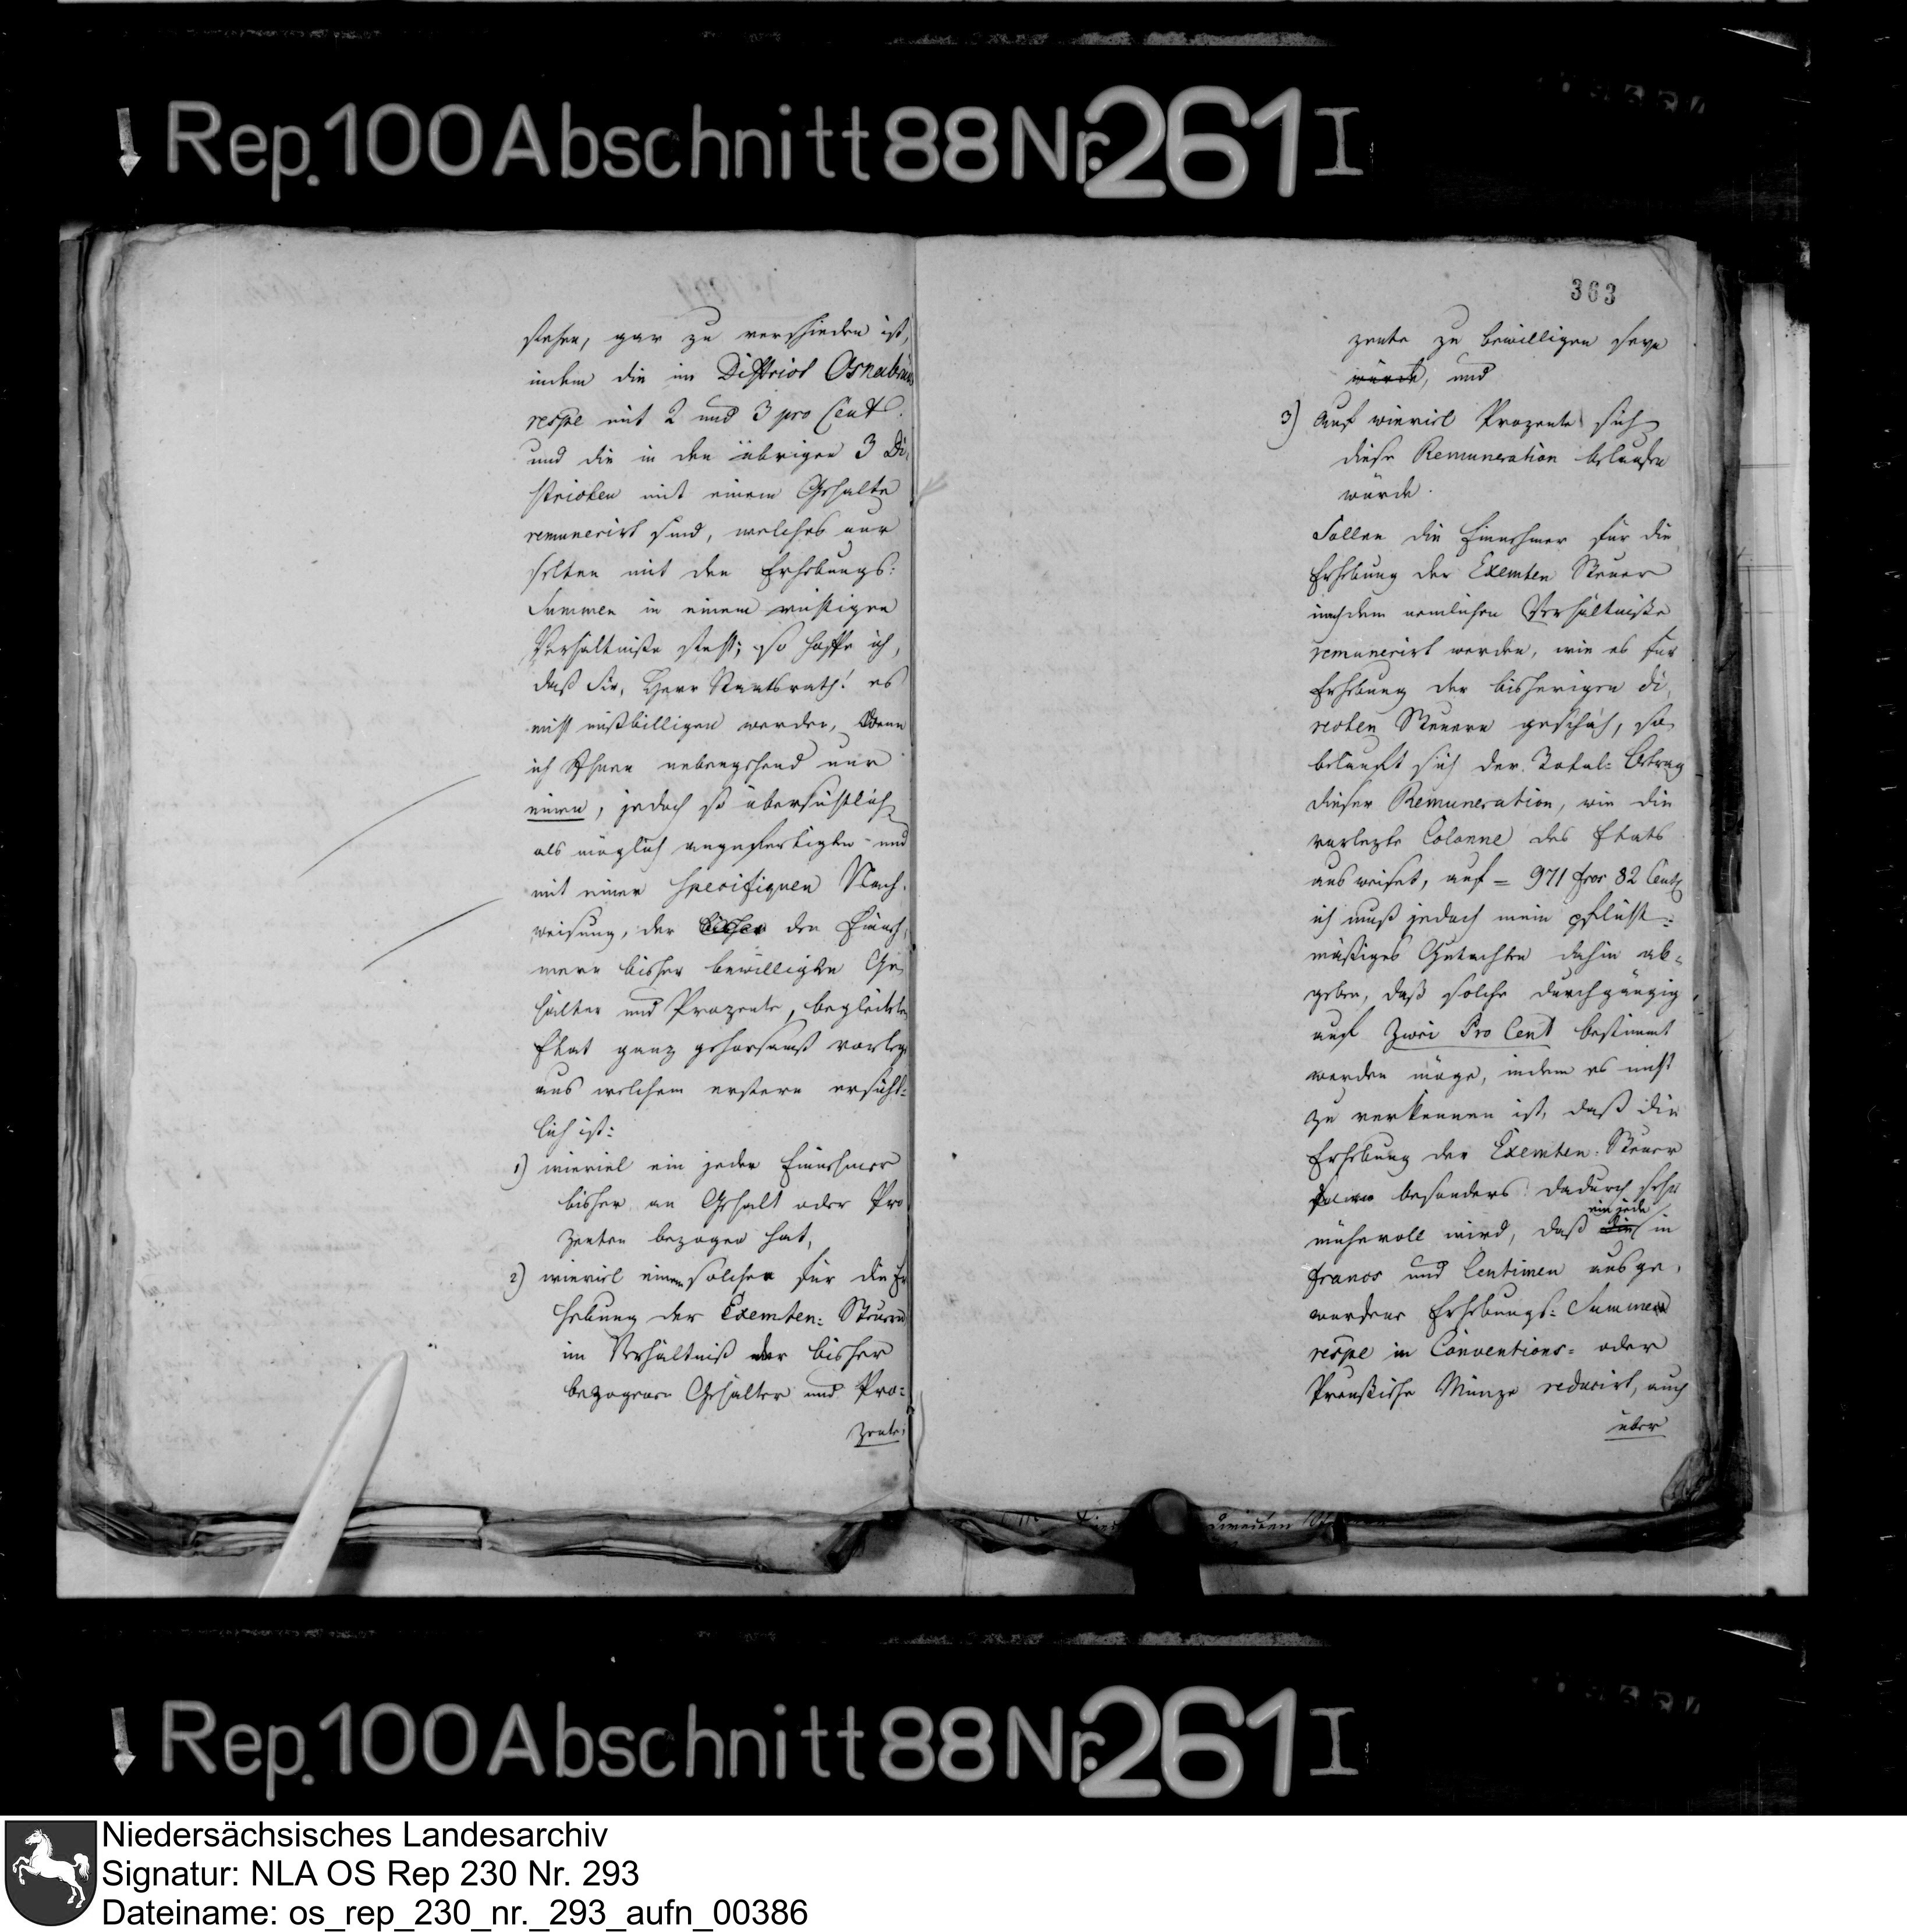 Rep. 100 Abschnitt 88 Nr. 261 I
stehen, gar zu verschieden ist,
indem die im District Osnabrück
respe mit 2 und 3 pro Cent
und die in den übrigen 3 Di-
stricten mit einem Gehalte
remunerirt sind, welches nur
selten mit den Erhebungs:
Summen in einem richtigen
Verhältniße steht; so hoffe ich,
daß Sie, Herr Staatsrath! es
nicht mißbilligen werden, wenn
ich Ihnen nebengehend nur
einen, jedoch so übersichtlich
als möglich angefertigten - und
mit einer specifiquen Nach-
weisung, der bisher den Einneh-
mern bisher bewilligten Ge-
hälter und Prozente, begleiteten
Etat ganz gehorsamst vorlege
aus welchem erstern ersicht=
lich ist:
1) wieviel ein jeder Einnehmer
bisher an Gehalt oder Pro
zenten bezogen hat,
2) wieviel einem solchen für die Er
hebung der Exemten: Steuern
im Verhältniß der bisher
bezogenen Gehälter und Pro=
zente,
363
zente zu bewilligen seyn
würde, und
3) Auf wieviel Prozente sich
diese Remuneration belaufen
würde.
Sollen die Einnehmer für die
Erhebung der Exemten Steuer
nach dem nemlichen Verhältniße
remunerirt werden, wie es für
Erhebung der bisherigen di-
recten Steuern geschah, so
beläuft sich der Total= Betrag
dieser Remuneration, wie die
vorlezte Colonne des Etats
ausweiset, auf = 971 frcs 82 Cent
ich muß jedoch mein pflicht=
mäßiges Gutachten dahin ab=
geben, daß solche durchgängig
auf Zwei Pro Cent bestimmt
werden möge, indem es nicht
zu verkennen ist, daß die
Erhebung der Exemten-Steuer
besonders dadurch sehr
ein jede
mühevoll wird, daß die in
francs und Centimen ausge-
worfene Erhebungs= Summen
respe in Conventions= oder
Preußische Münze reducirt, auch
über
Rep. 100 Abschnitt 88 Nr. 261 I
Niedersächsisches Landesarchiv
Signatur: NLA OS Rep 230 Nr. 293
Dateiname: os_rep_230_nr._293_aufn_00386